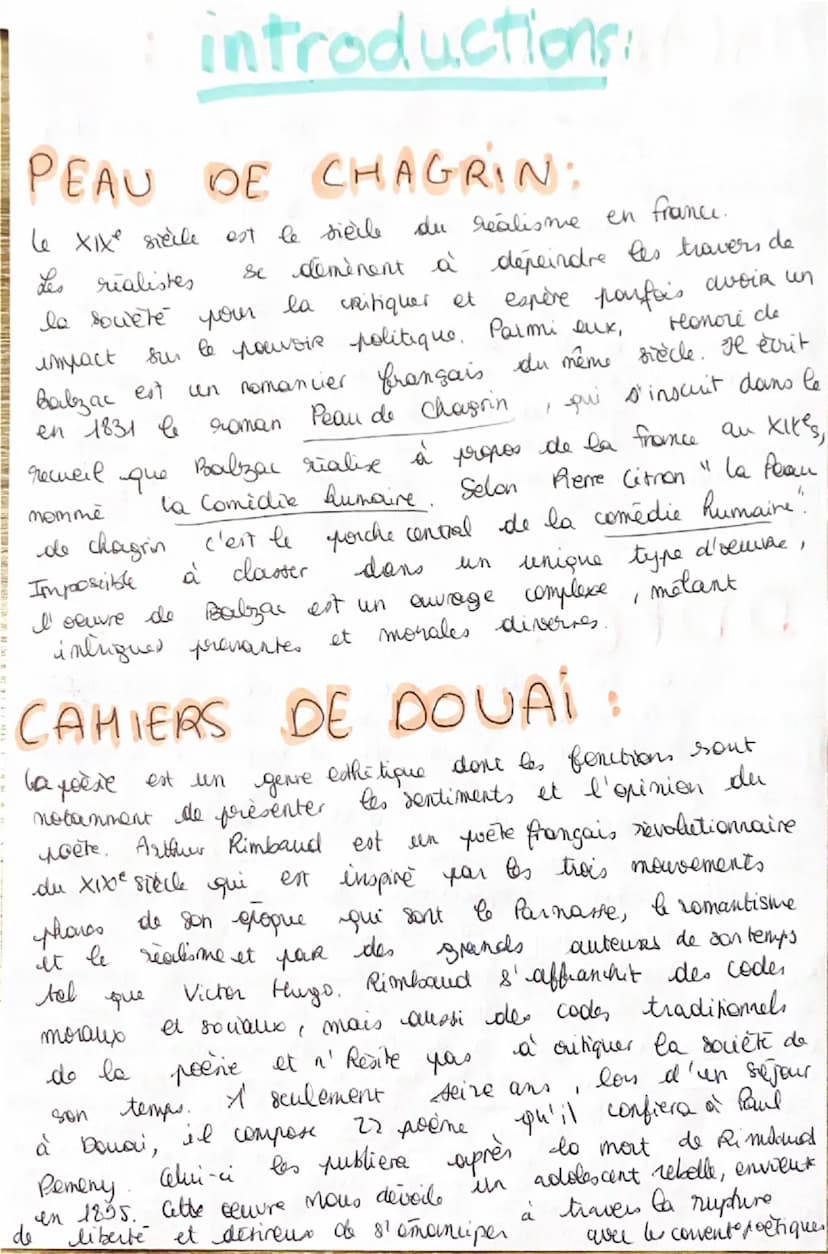 introductions:
PEAU DE CHAGRIN:
Le XIXe siècle est le siècle du réalisme en france.
Les réalistes se démènent à dépeindre les travers de
la société pour la critiquer et espère parfois avoir un
impact sur le pouvoir politique. Parmi eux, Honoré de
Balzac est un romancier français du même siècle. Il écrit
en 1831 le roman Peau de Chagrin, qui s'inscrit dans le
recueil que Balzac réalise à propos de la france au XIXes,
nommé la Comédie humaine. Selon Pierre Citron "la Peau
de chagrin c'est le porche central de la comédie humaine".
Impossible à classer dans un unique type d'oeuvre,
l'oeuvre de Balzac est un ouvrage complexe, mêlant
intrigues prenantes et morales diverses.
CAHIERS DE DOUAI:
La poésie est un genre esthétique dont les fonctions sont
notamment de présenter les sentiments et l'opinion du
poète. Arthur Rimbaud est un poète français révolutionnaire
du XIXe siècle qui est inspiré par les trois mouvements
phares de son époque qui sont le Parnasse, le romantisme
et le réalisme et par des grands auteurs de son temps
tel que Victor Hugo. Rimbaud s'affranchit des codes
moraux et sociaux, mais aussi des codes traditionnels
de la poésie et n'hésite pas à critiquer la société de
son temps. A seulement seize ans, lors d'un séjour
à Douai, il compose 22 poème qu'il confiera à Paul
Demeny. Celui-ci les publiera après la mort de Rimbaud
en 1895. Cette oeuvre nous dévoile un adolescent rebelle, envieux
de liberté et désireux de s'émanciper à travers la rupture
avec les poétiques